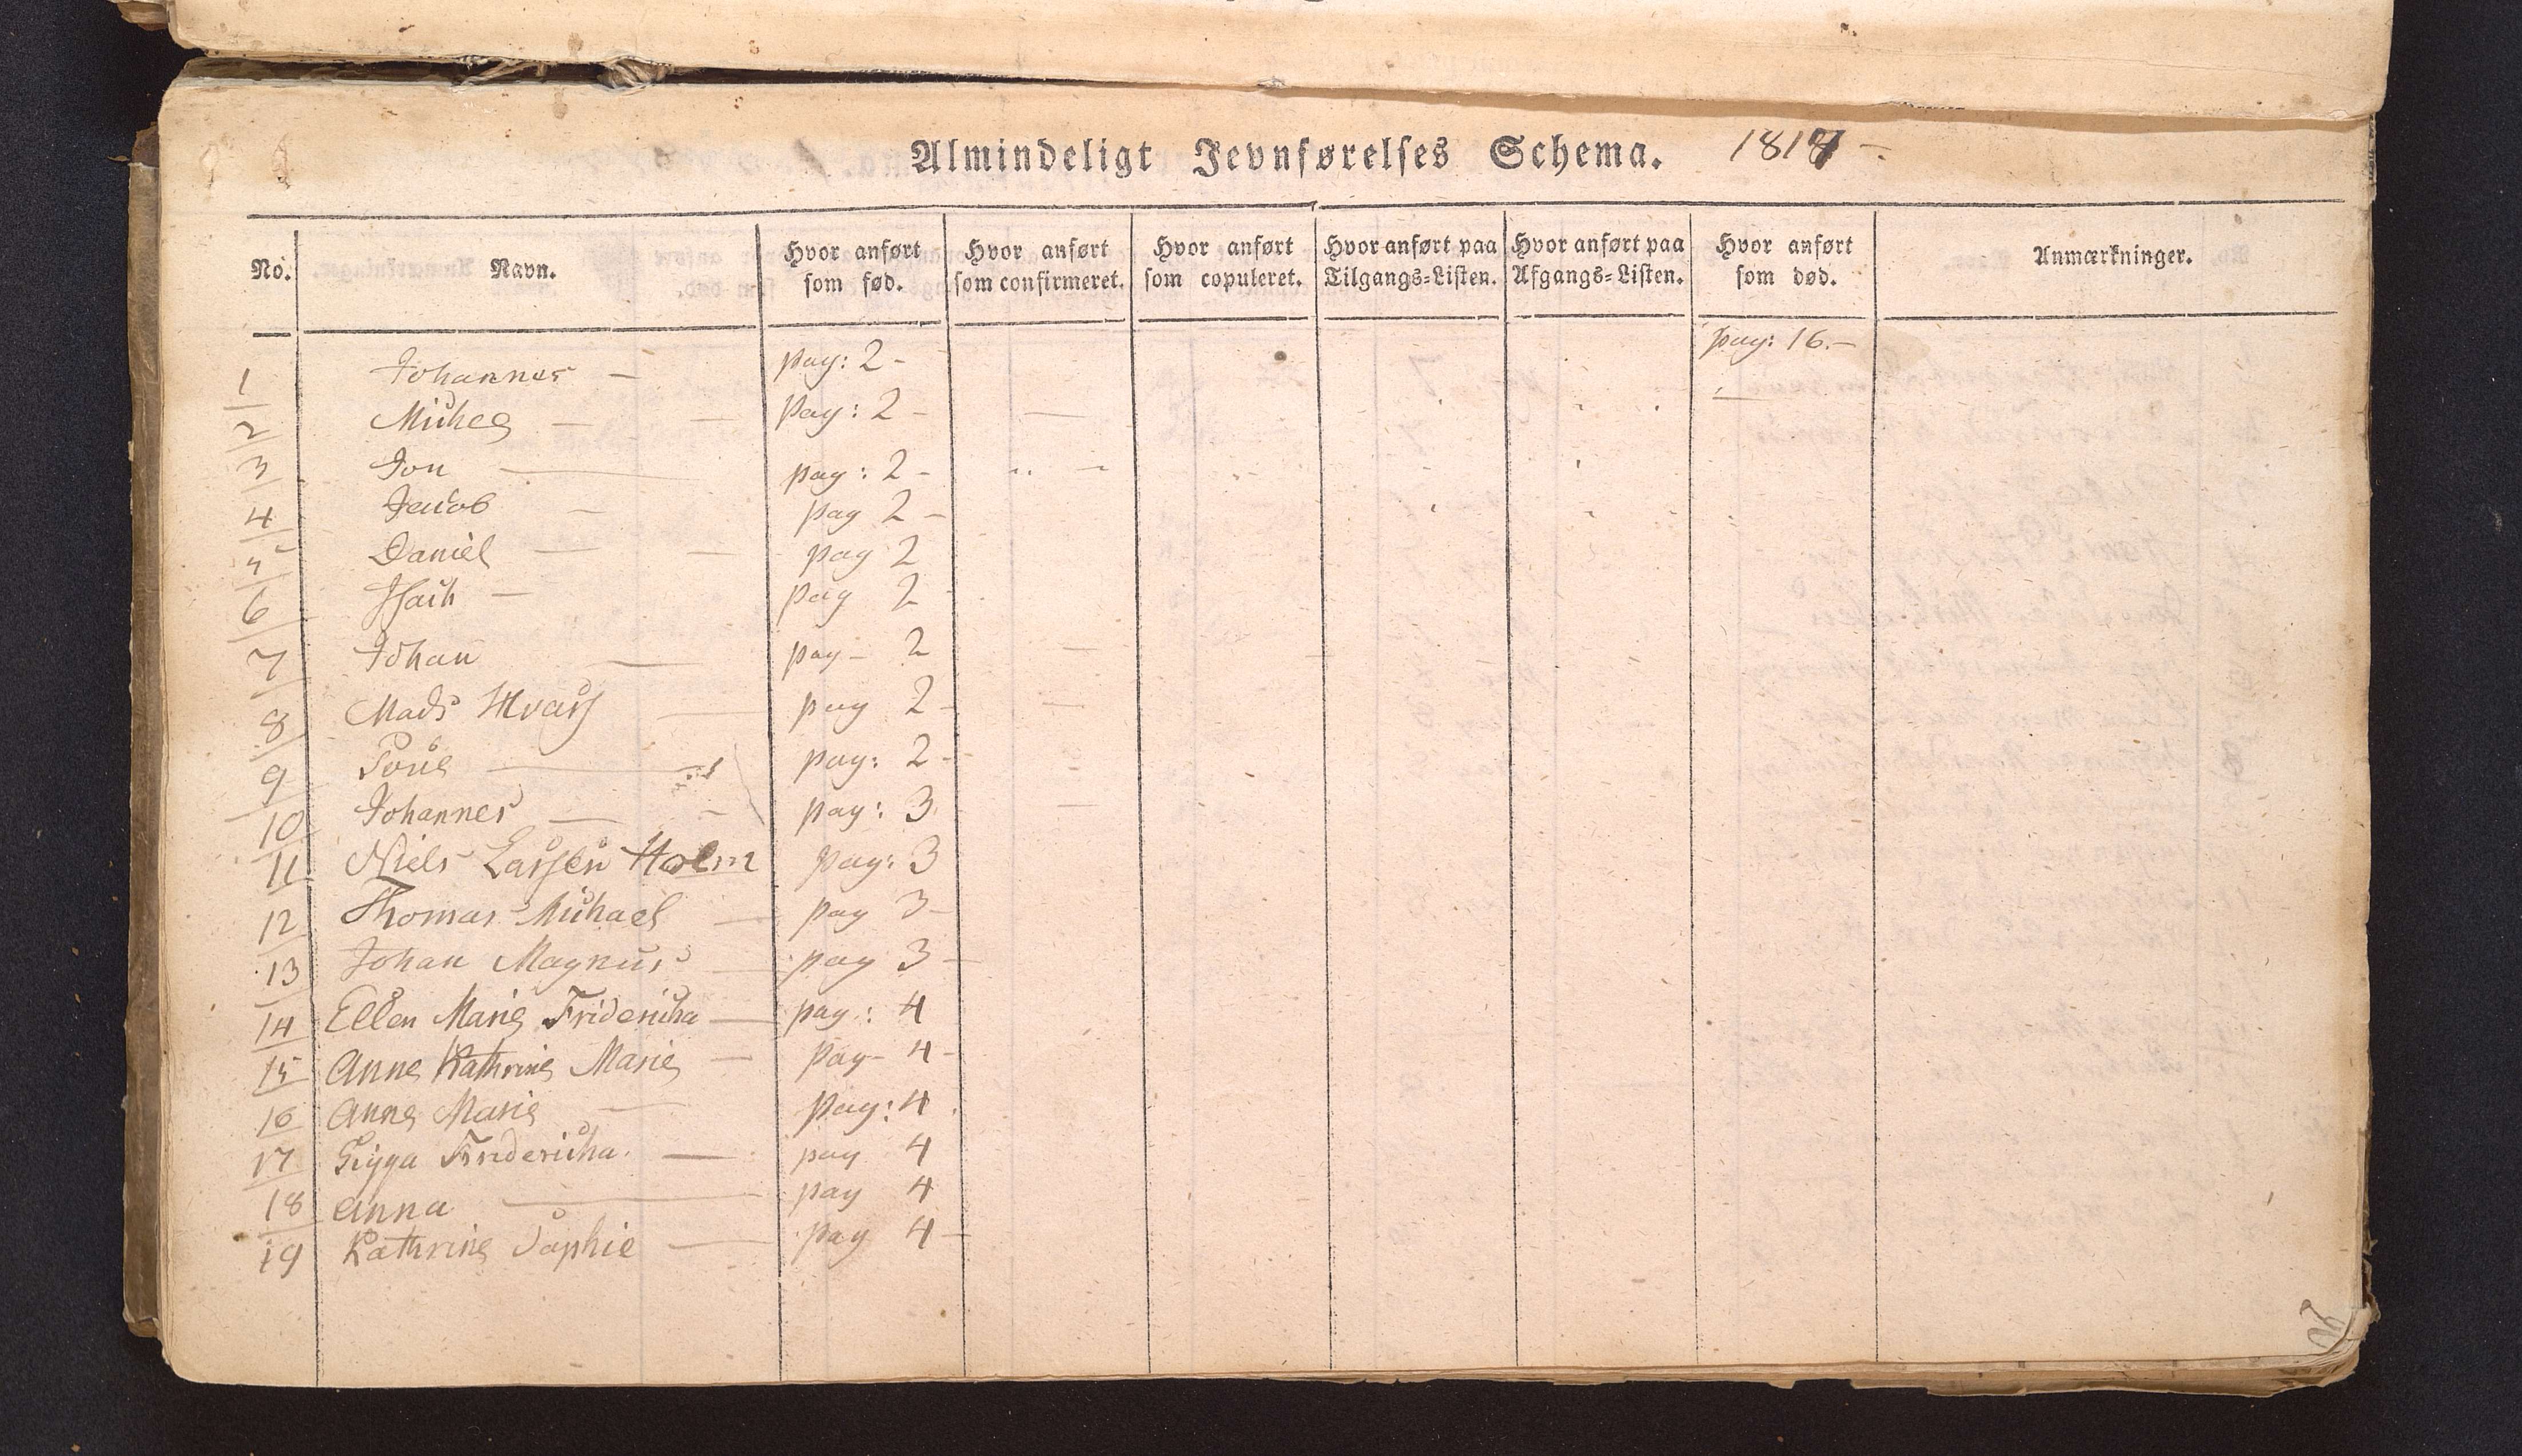 Almindeligt Jevnførelses Schema. 1817 -
No. Navn. Hvor anført som fød. Hvor anført som confirmeret. Hvor anført som copuleret. Hvor anført paa Tilgangs-Listen. Hvor anført paa Afgangs-Listen. Hvor anført som død. Anmærkninger.
1 Johannes - pag: 2 - pag: 16. -
2 Michel - pag: 2 -
3 Jon - pag: 2 -
4 Jacob - pag 2 -
5 Daniel - pag 2
6 Isach - pag 2
7 Johan - pag - 2
8 Mads - pag 2 -
9 Poul - pag: 2 -
10 Johannes - pag: 3
11 Niels Larsen Holm pag: 3
12 Thomas Michael - pag 3 -
13 Johan Magnus - pag 3 -
14 Ellen Marie Fridericha - pag: 4
15 Anne Kathrine Marie - pag - 4 -
16 Anne Marie - pag: 4
17 Sigga Fridericha. - pag 4
18 Anna - pag 4
19 Kathrine Sophie - pag 4 -